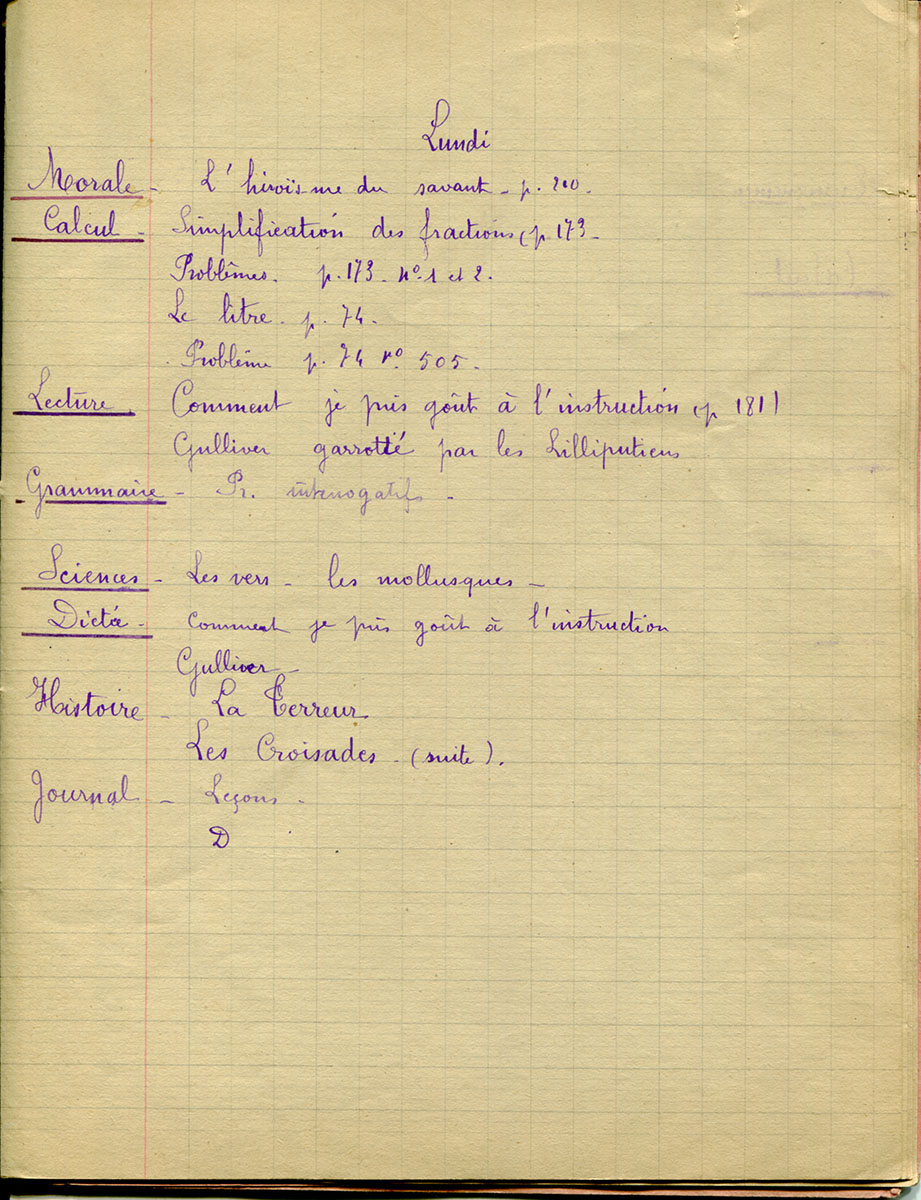 Lundi
Morale - L'héroïsme du savant - p. 200.
Calcul - Simplification des fractions (p. 173 -
Problèmes. p. 173 - nos 1 et 2.
Le litre. p. 74.
Problème p. 74 no 505.
Lecture. Comment je pris goût à l'instruction (p 181)
Gulliver garrotté par les Lilliputiens
Grammaire - Pr. interrogatifs -
Sciences - Les vers - les mollusques -
Dictée - Comment je pris goût à l'instruction
Gulliver -
Histoire - La Terreur
Les Croisades - (suite).
Journal - Leçons -
D